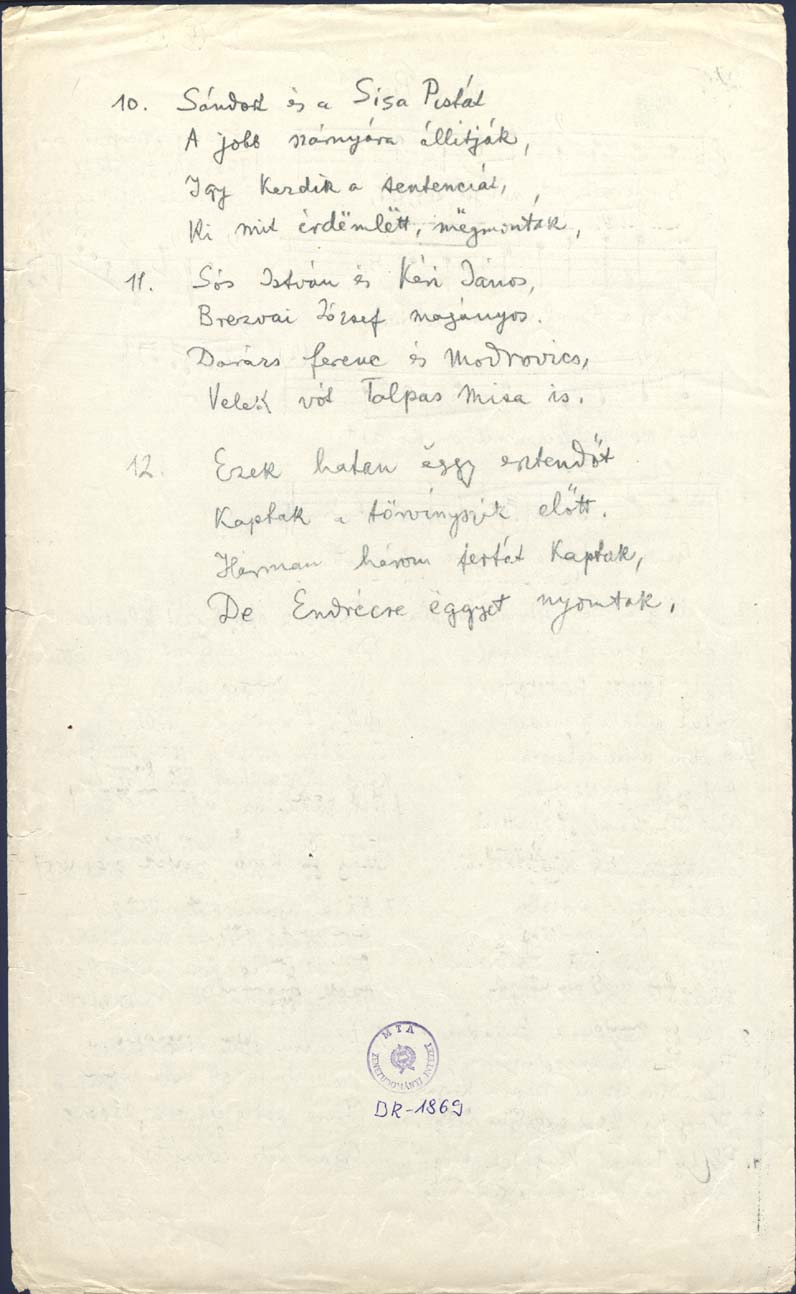 10. Sándort és a Sisa Pistát
A jobb szárnyára állitják,
Igy kezdik a sentenciát,
Ki mit érdëmlëtt, mëgmonták,
11. Sós István és Kéri János,
Brezvai József magányos.
Darázs ferenc és Modrovics,
Velek vót Talpas Misa is.
12. Ezek hatan ëggy esztendőt
Kaptak a törvényszék előtt.
Hárman három fertát kaptak,
De Endrécre ëggyet nyomtak,
MTA
ZENETUDOMÁNYI INTÉZET
BR-1869